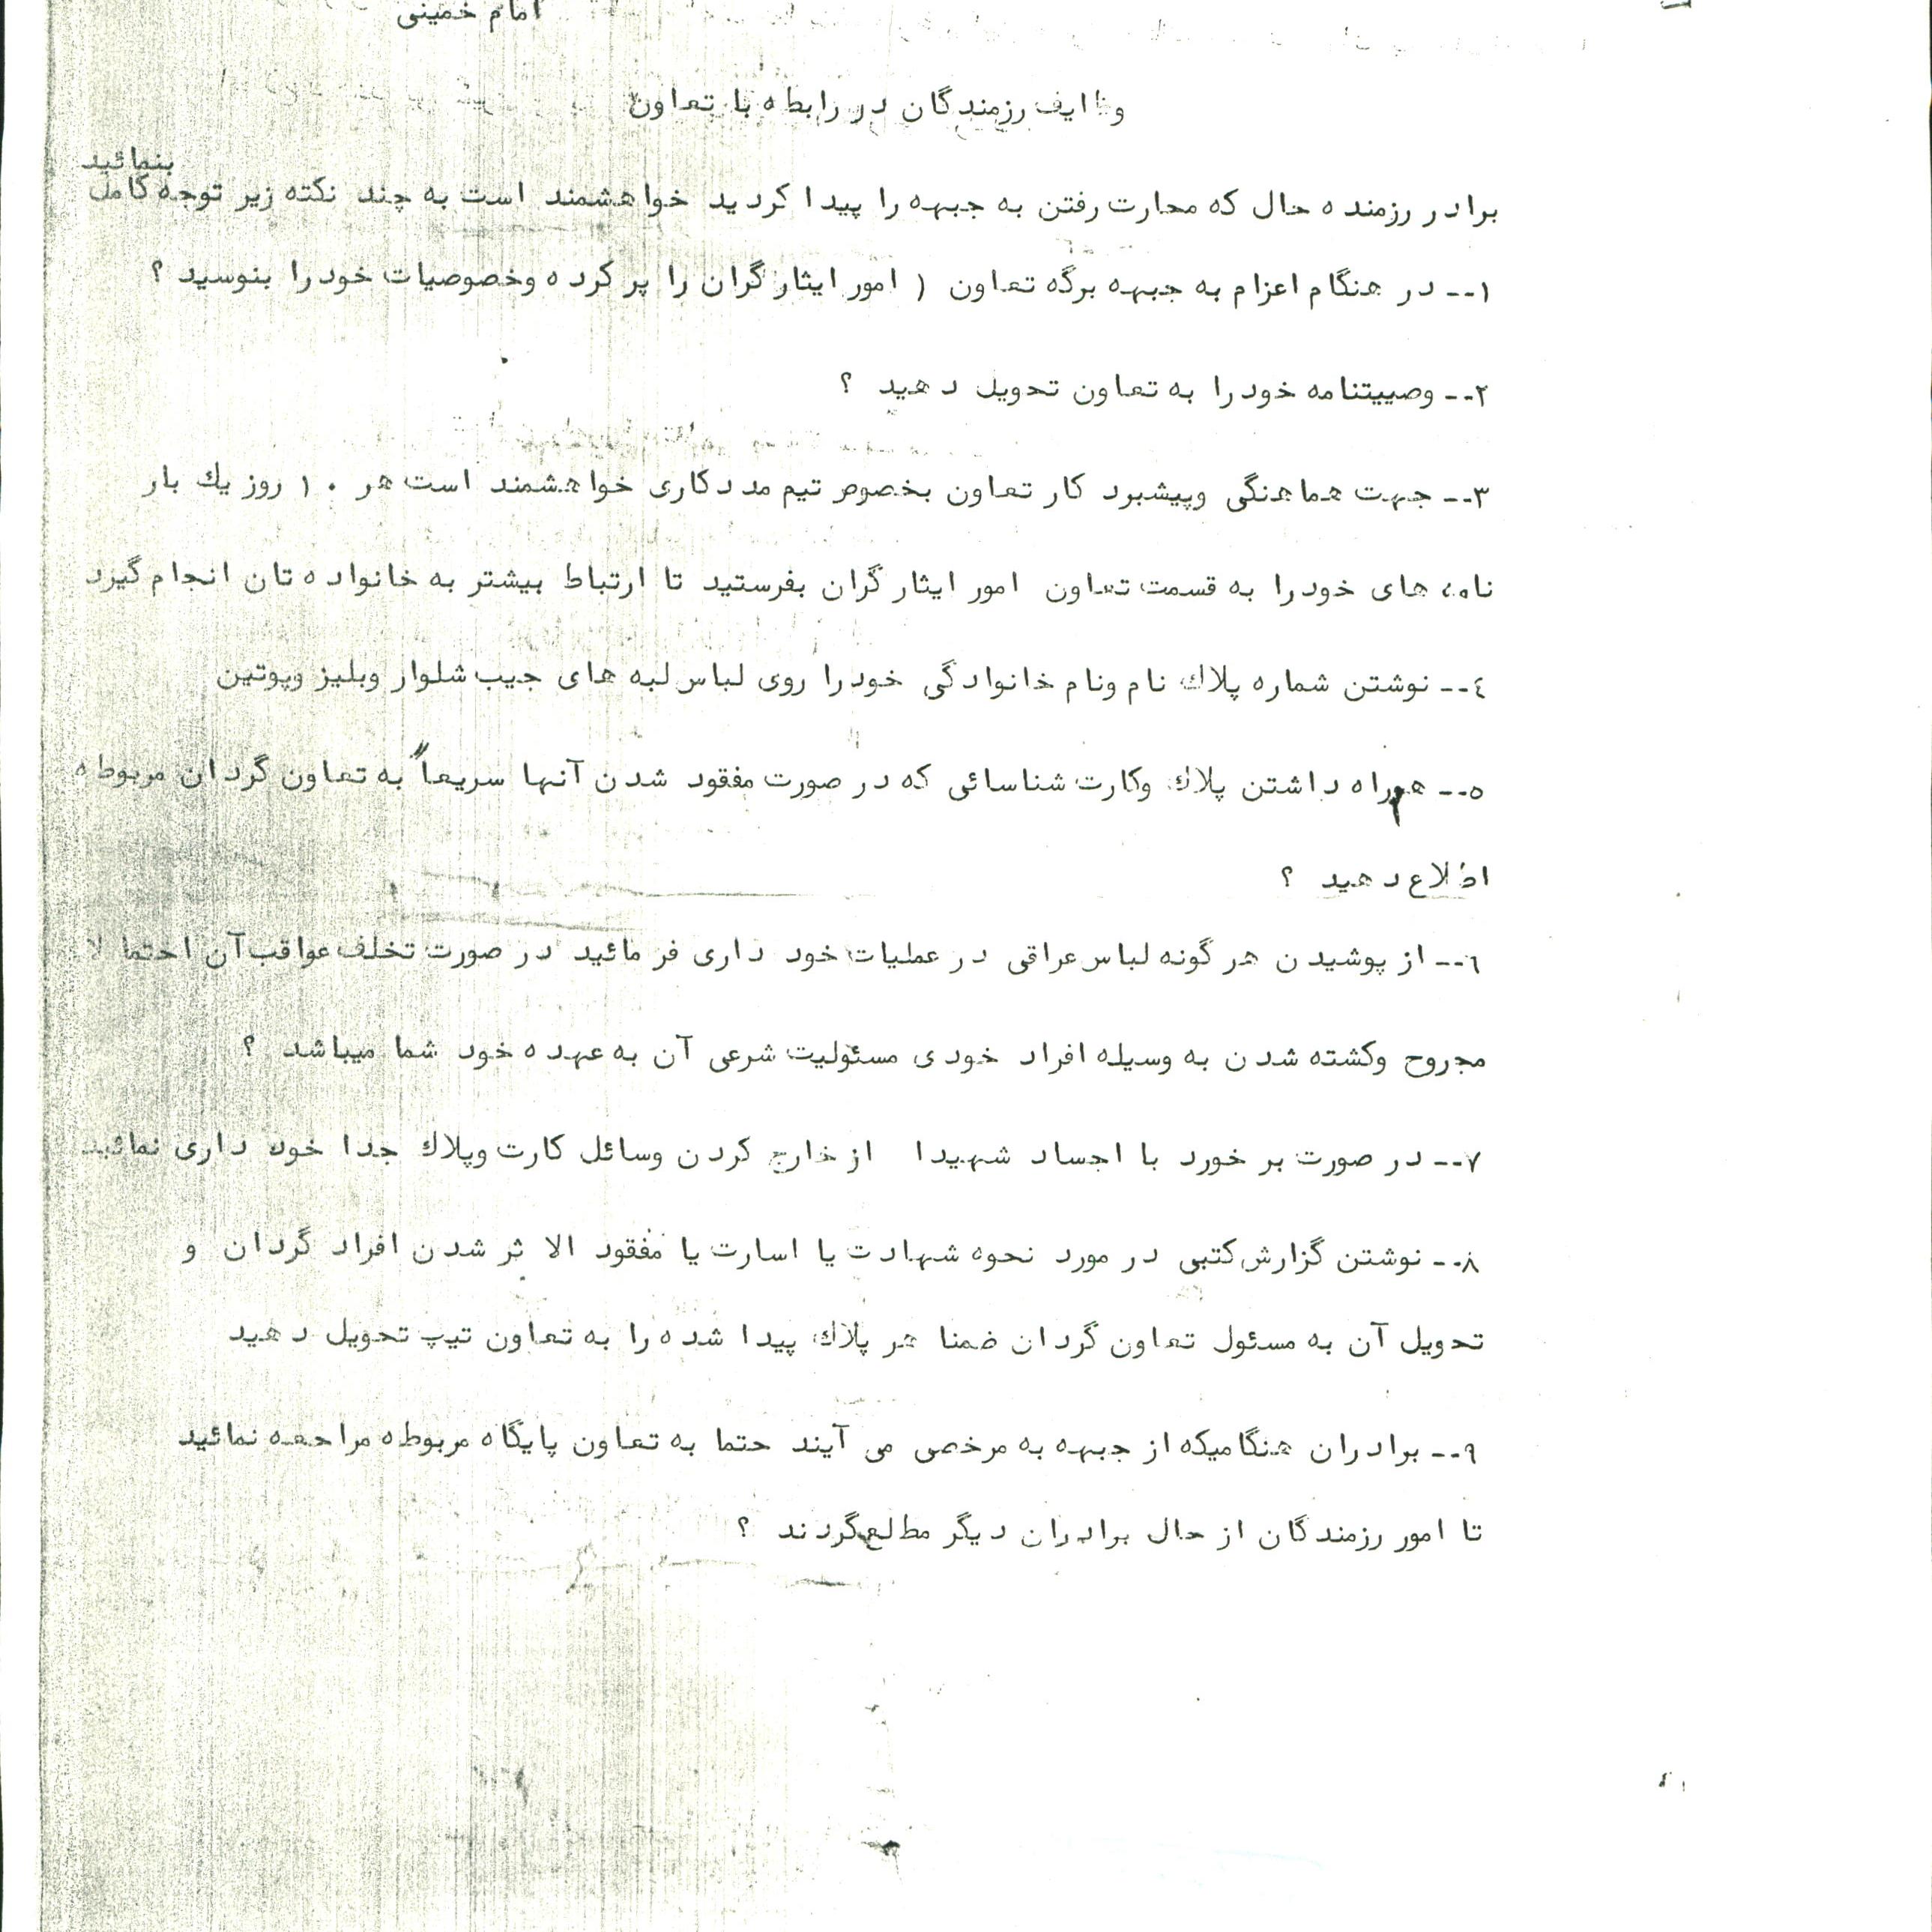 امام خمینی
وظایف رزمندگان در رابطه با تعاون
بنمائید
برادر رزمنده حال که مهارت رفتن به جبهه را پیدا کردید خواهشمند است به چند نکته زیر توجه کامل
۱-- در هنگام اعزام به جبهه برگه تعاون ( امور ایثارگران را پر کرده وخصوصیات خودرا بنوسید ؟
۲-- وصییتنامه خودرا به تعاون تحویل دهید ؟
۳-- جهت هماهنگی وپیشبرد کار تعاون بخصوص تیم مددکاری خواهشمند است هر ۱۰ روز یك بار
نامه های خودرا به قسمت تعاون امور ایثارگران بفرستید تا ارتباط بیشتر به خانواده تان انجام گیرد
٤-- نوشتن شماره پلاك نام ونام خانوادگی خودرا روی لباس لبه های جیب شلوار وبلیز وپوتین
۵-- همراه داشتن پلاك وکارت شناسائی که در صورت مفقود شدن آنها سریعاً به تعاون گردان مربوطه
اطلاع دهید ؟
٦-- از پوشیدن هر گونه لباس عراقی در عملیات خود داری فرمائید در صورت تخلف عواقب آن احتمالا
مجروح وکشته شدن به وسیله افراد خودی مسئولیت شرعی آن به عهده خود شما میباشد ؟
۷-- در صورت بر خورد با اجساد شهیدا از خارج کردن وسائل کارت وپلاك جدا خود داری نمائید
۸-- نوشتن گزارش کتبی در مورد نحوه شهادت یا اسارت یا مفقود الا ثر شدن افراد گردان و
تحویل آن به مسئول تعاون گردان ضمنا هر پلاك پیدا شده را به تعاون تیپ تحویل دهید
۹-- برادران هنگامیکه از جبهه به مرخصی می آیند حتما به تعاون پایگاه مربوطه مراجعه نمائید
تا امور رزمندگان از حال برادران دیگر مطلع گردند ؟